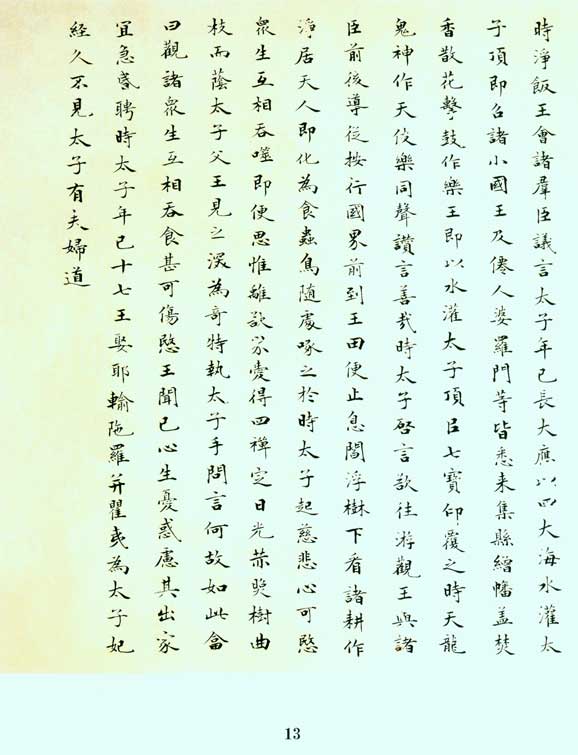 時淨飯王會諸羣臣議言太子年已長大應以四大海水灌太
子頂即召諸小國王及僊人婆羅門等皆悉来集縣繒幡盖焚
香散花擊鼓作樂王即以水灌太子頂㠯七寶仰覆之時天龍
鬼神作天伎樂同聲讚言善哉時太子啓言欲往游觀王與諸
臣前後導從按行國界前到王田便止息閻浮樹下看諸耕作
淨居天人即化為食蟲鳥随處啄之於時太子起慈悲心可愍
衆生互相吞噬即便思惟離欲界愛得四禪定日光赤熒樹曲
枝而蔭太子父王見之深為奇特執太子手問言何故如此畣
曰觀諸衆生互相吞食甚可傷愍王聞已心生憂惑慮其出家
宜急㛰聘時太子年已十七王娶耶輸陁羅并瞿夷為太子妃
経久不見太子有夫婦道
13